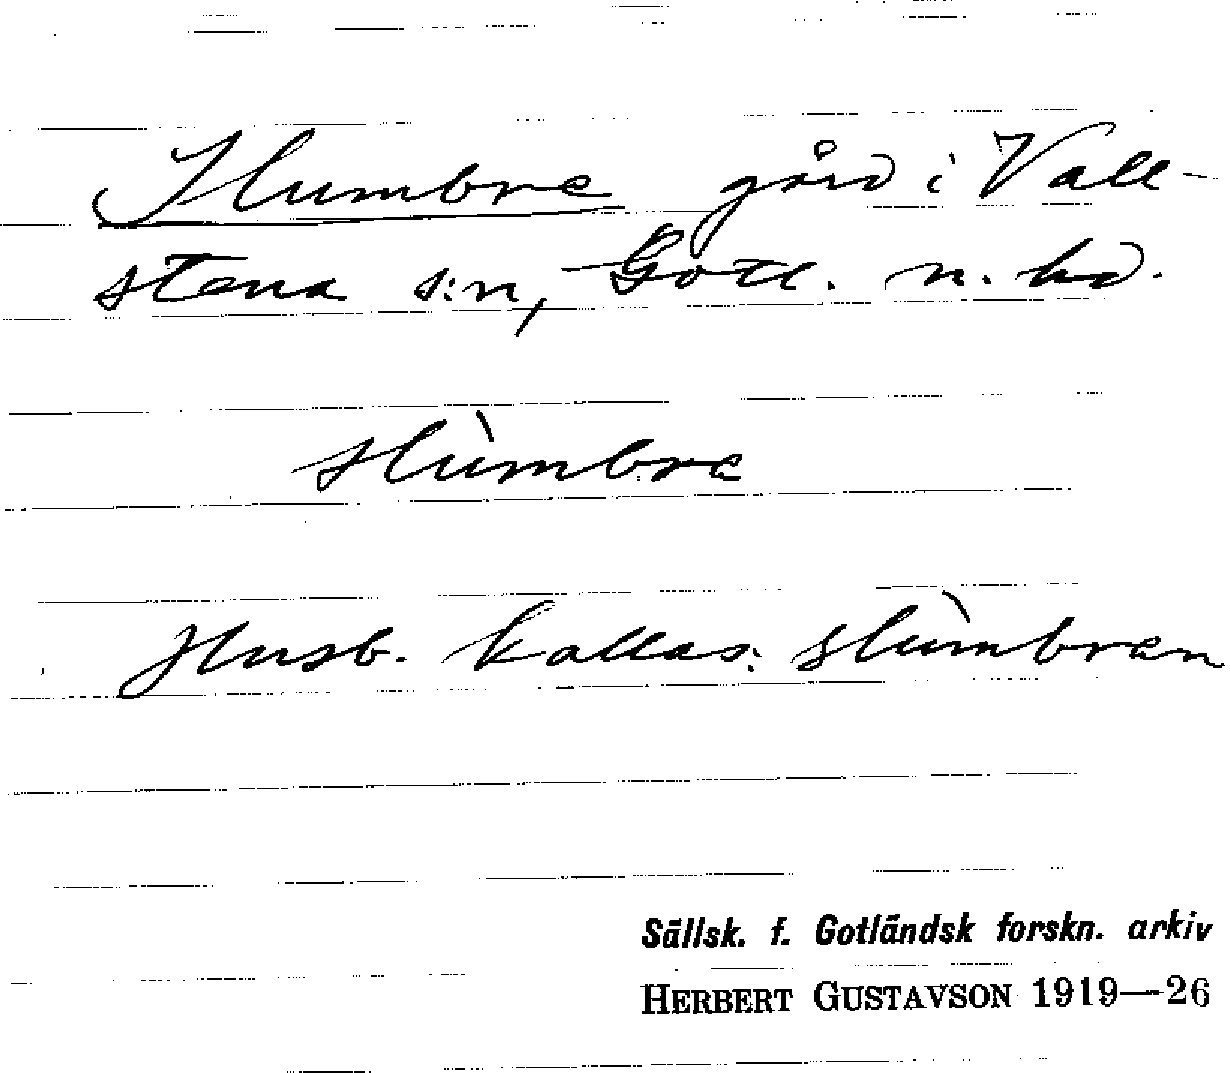 Slumbre gård i Vall-
stena s:n, Gotl. n. hd.
slùmbre
Husb. kallas: slùmbren
Sällsk. f. Gotländsk forskn. arkiv
HERBERT GUSTAVSON 1919—26